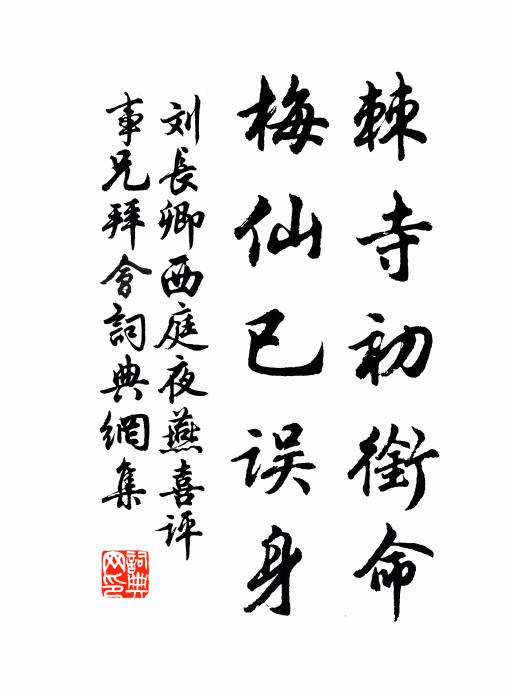 棘寺初銜命
梅仙已误身
刘長卿西庭夜燕喜评
事兄拜會詞典網集
詞典
网印